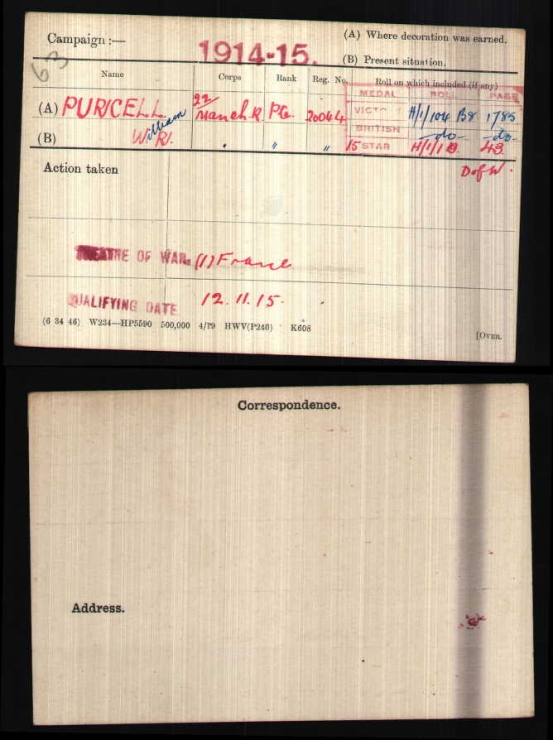 Campaign :—
1914-15.
(A) Where decoration was earned.
(B) Present situation.
63
Name Corps Rank Reg. No. Roll on which included (if any)
MEDAL ROLL PAGE
(A) PURCELL. 22/ Manch. R. Pte. 20044 VICTO H/1/104 B8 1785
William
BRITISH -do- -do-
(B) W. R. " " " 15 STAR H/1/1 B. 43
Action taken D of W.
THEATRE OF WAR. (1) France
QUALIFYING DATE 12.11.15.
(6 34 46) W234—HP5590 500,000 4/19 HWV(P240) K608
[OVER.
Correspondence.
Address.